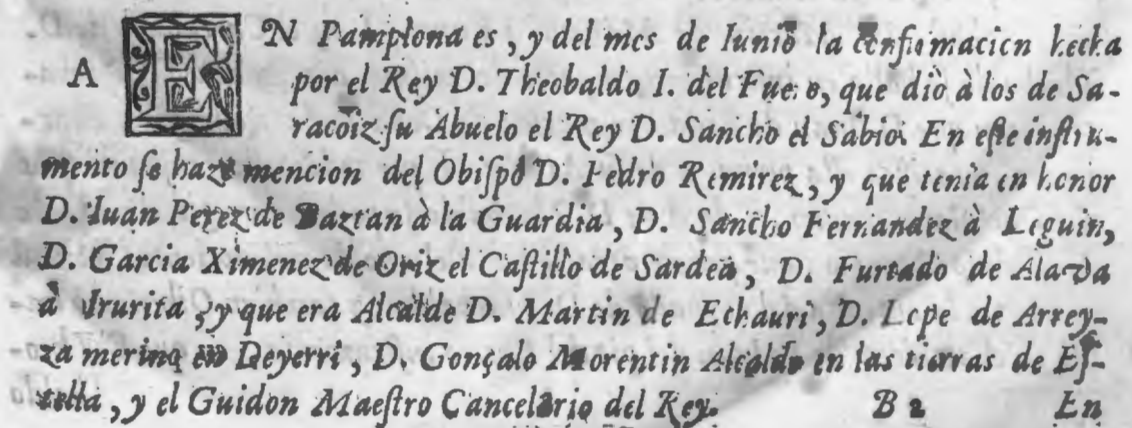 A EN Pamplona es, y del mes de Iunio la confirmacion hecha
por el Rey D. Theobaldo I. del Fuero, que diò à los de Sa-
racoiz ſu Abuelo el Rey D. Sancho el Sabio. En eſte inſtru-
mento ſe haze mencion del Obiſpo D. Pedro Remirez, y que tenía en honor
D. Iuan Perez de Baztan à la Guardia, D. Sancho Fernandez à Leguin,
D. Garcia Ximenez de Oriz el Caſtillo de Sardea, D. Furtado de Alava
à Irurita, y que era Alcalde D. Martin de Echauri, D. Lope de Arrey-
za merino en Deyerri, D. Gonçalo Morentin Alcalde en las tierras de Eſ-
tella, y el Guidon Maeſtro Cancelario del Rey.
B 2 En